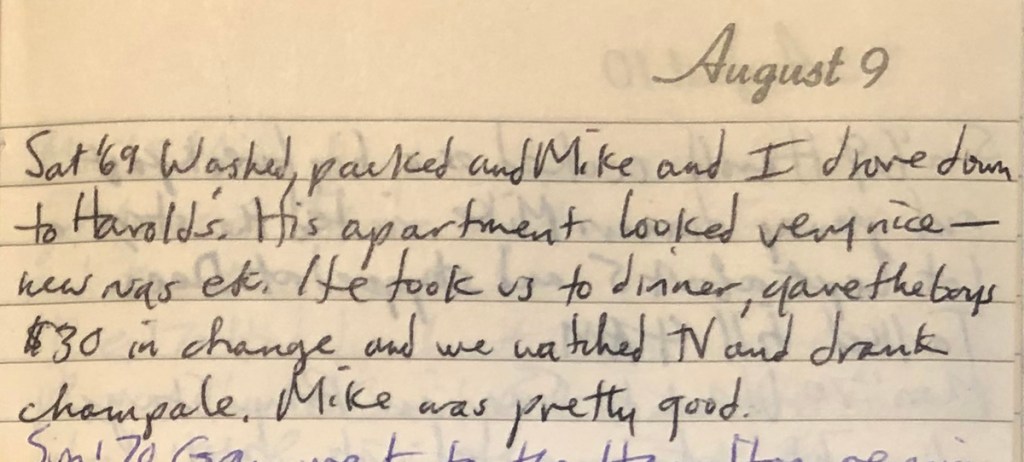 August 9
Sat '69 Washed, packed and Mike and I drove down
to Harold's. His apartment looked very nice —
new rugs etc. He took us to dinner, gave the boys
$30 in change and we watched TV and drank
champale. Mike was pretty good.